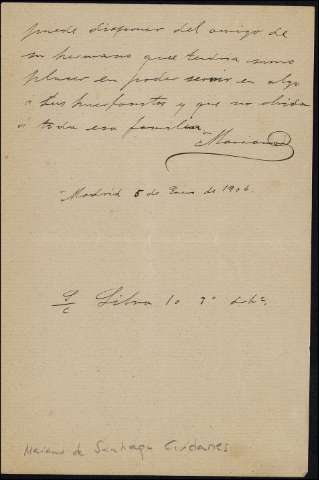 puede disponer del amigo de
su hermano que tendria sumo
placer en poder servir en algo
a sus huerfanitos y que no olvida
a toda esa familia
Mariano
Madrid 5 de Enero de 1906.
S/C Silva 10 3º dcha.
Mariano de Santiago Cividanes